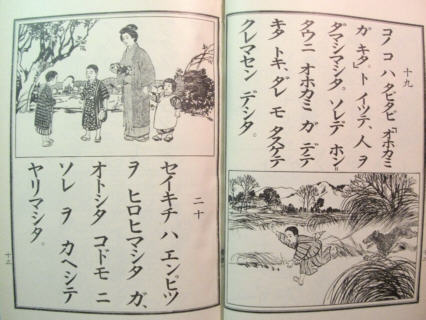 十九
コノ コ ハ タビタビ オホカミ
ガ キタ ト イツテ、人 ヲ
ダマシマシタ。ソレデ ホン
タウニ オホカミ ガ デテ
キタ トキ、ダレ モ タスケテ
クレマセン デシタ。
二十
セイキチ ハ エンピツ
ヲ ヒロヒマシタ ガ、
オトシタ コドモ ニ
ソレ ヲ カヘシテ
ヤリマシタ。